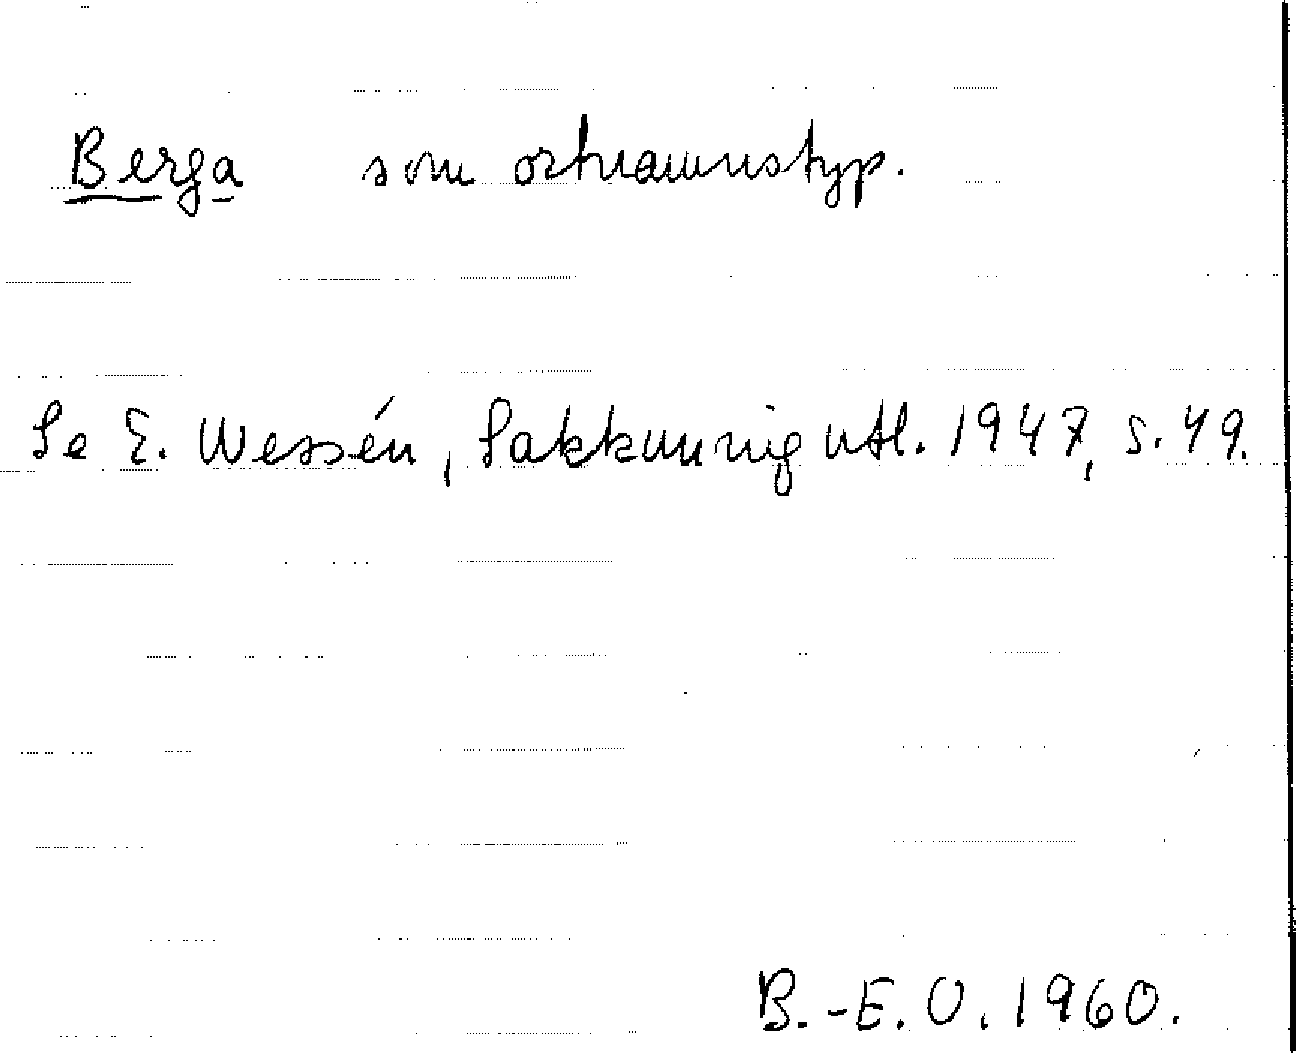 Berga som ortnamnstyp.
Se E. Wessén, Sakkunnigutl. 1947, s. 49.
B.-E. O. 1960.